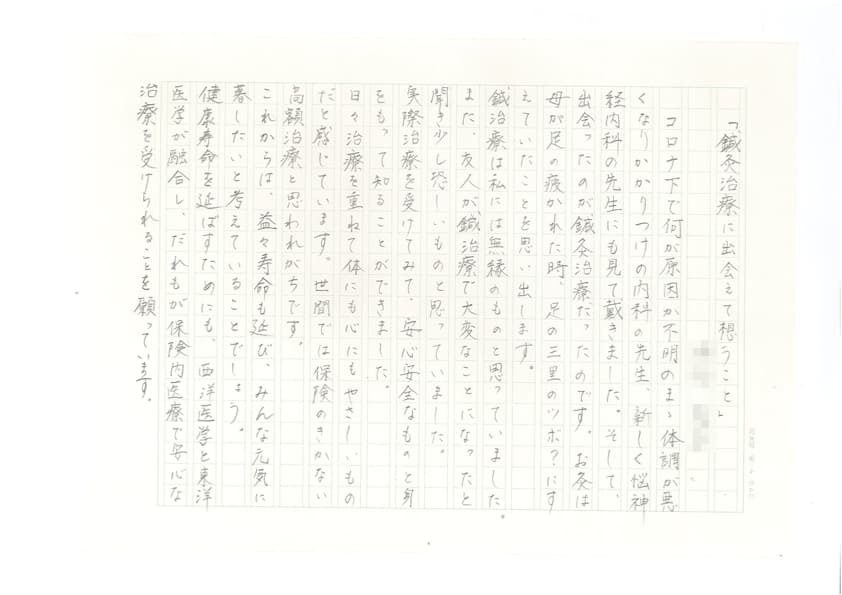 「鍼灸治療に出会えて想うこと」
コロナ下で何が原因か不明のまゝ体調が悪
くなりかかりつけの内科の先生、新しく悩神
経内科の先生にも見て戴きました。そして、
出会ったのが鍼灸治療だったのです。お灸は
母が足の疲かれた時、足の三里のツボ？にす
えていたことを思い出します。
鍼治療は私には無縁のものと思っていました
また、友人が鍼治療で大変なことになったと
聞き少し恐しいものと思っていました。
実際治療を受けてみて、安心安全なものと身
をもって知ることができました。
日々治療を重ねて体にも心にもやさしいもの
だと感じています。世間では保険のきかない
高額治療と思われがちです。
これからは、益々寿命も延び、みんな元気に
暮したいと考えていることでしょう。
健康寿命を延ばすためにも、西洋医学と東洋
医学が融合し、だれもが保険内医療で安心な
治療を受けられることを願っています。